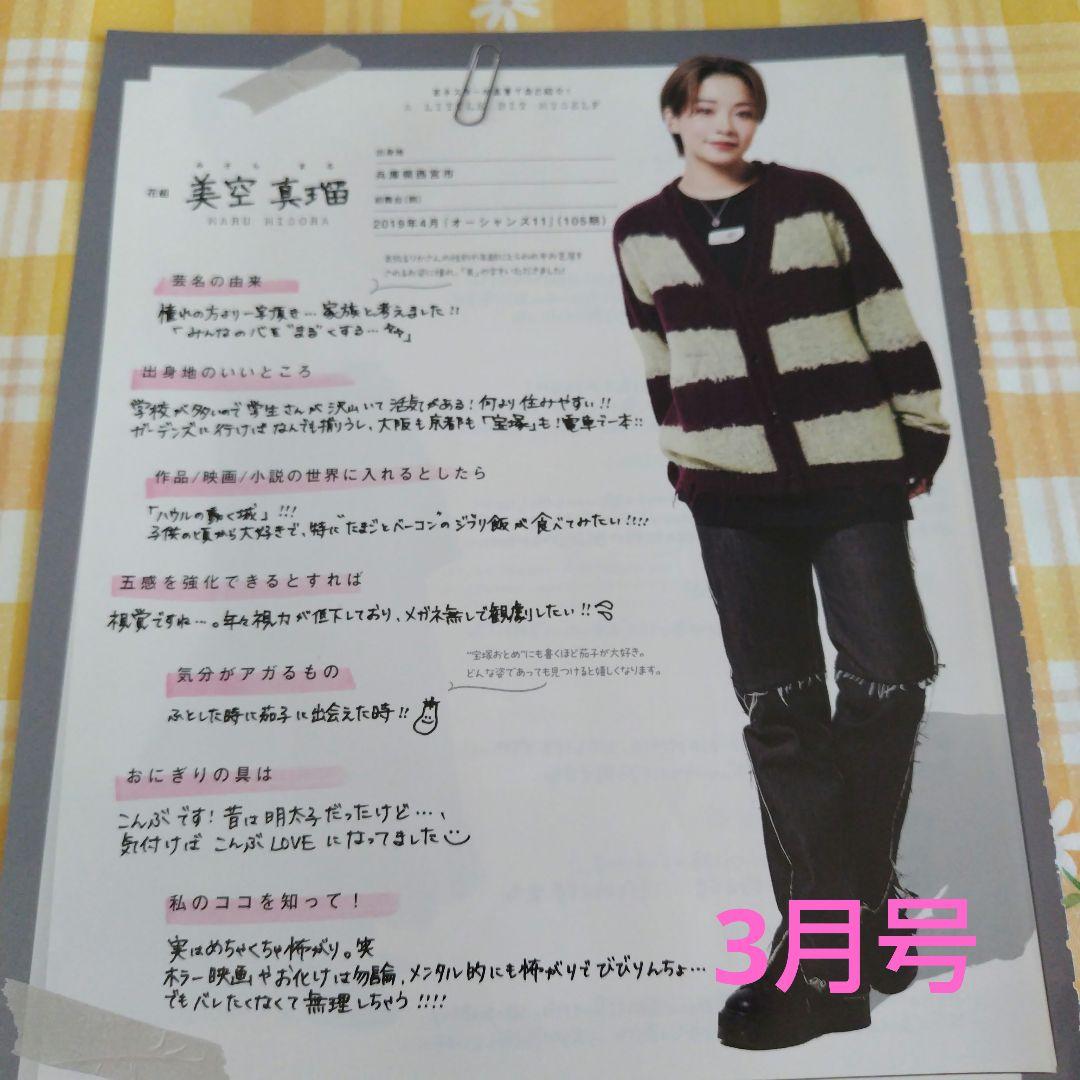 A LITTLE BIT MYSELF
出身地
兵庫県西宮市
みそら まる
花組 美空 真瑠
MARU MISORA
初舞台(期)
2019年4月「オーシャンズ11」(105期)
芸名の由来
憧れの方より一字頂き…家族と考えました!!
「みんなの心を"まる"くする…
出身地のいいところ
学校が多いので学生さんが沢山いて活気がある!何より住みやすい!!
ガーデンズに行けばなんでも揃うし、大阪も京都も「宝塚」も!電車で一本::
作品/映画/小説の世界に入れるとしたら
「ハウルの動く城」!!!
子供の頃から大好きで、特に"たまごとベーコン"のジブリ飯が食べてみたい!!!!
五感を強化できるとすれば
視覚ですね…。年々視力が低下しており、メガネ無しで観劇したい!!
"宝塚おとめ"にも書くほど茄子が大好き。
どんな姿であっても見つけると嬉しくなります。
気分がアガるもの
ふとした時に茄子に出会えた時!!
おにぎりの具は
こんぶです!昔は明太子だったけど…、
気付けば こんぶLOVE になってました
私のココを知って!
実はめちゃくちゃ怖がり。笑
ホラー映画やお化けは勿論、メンタル的にも怖がりでびびりんちょ…
でもバレたくなくて無理しちゃう!!!!
3月号